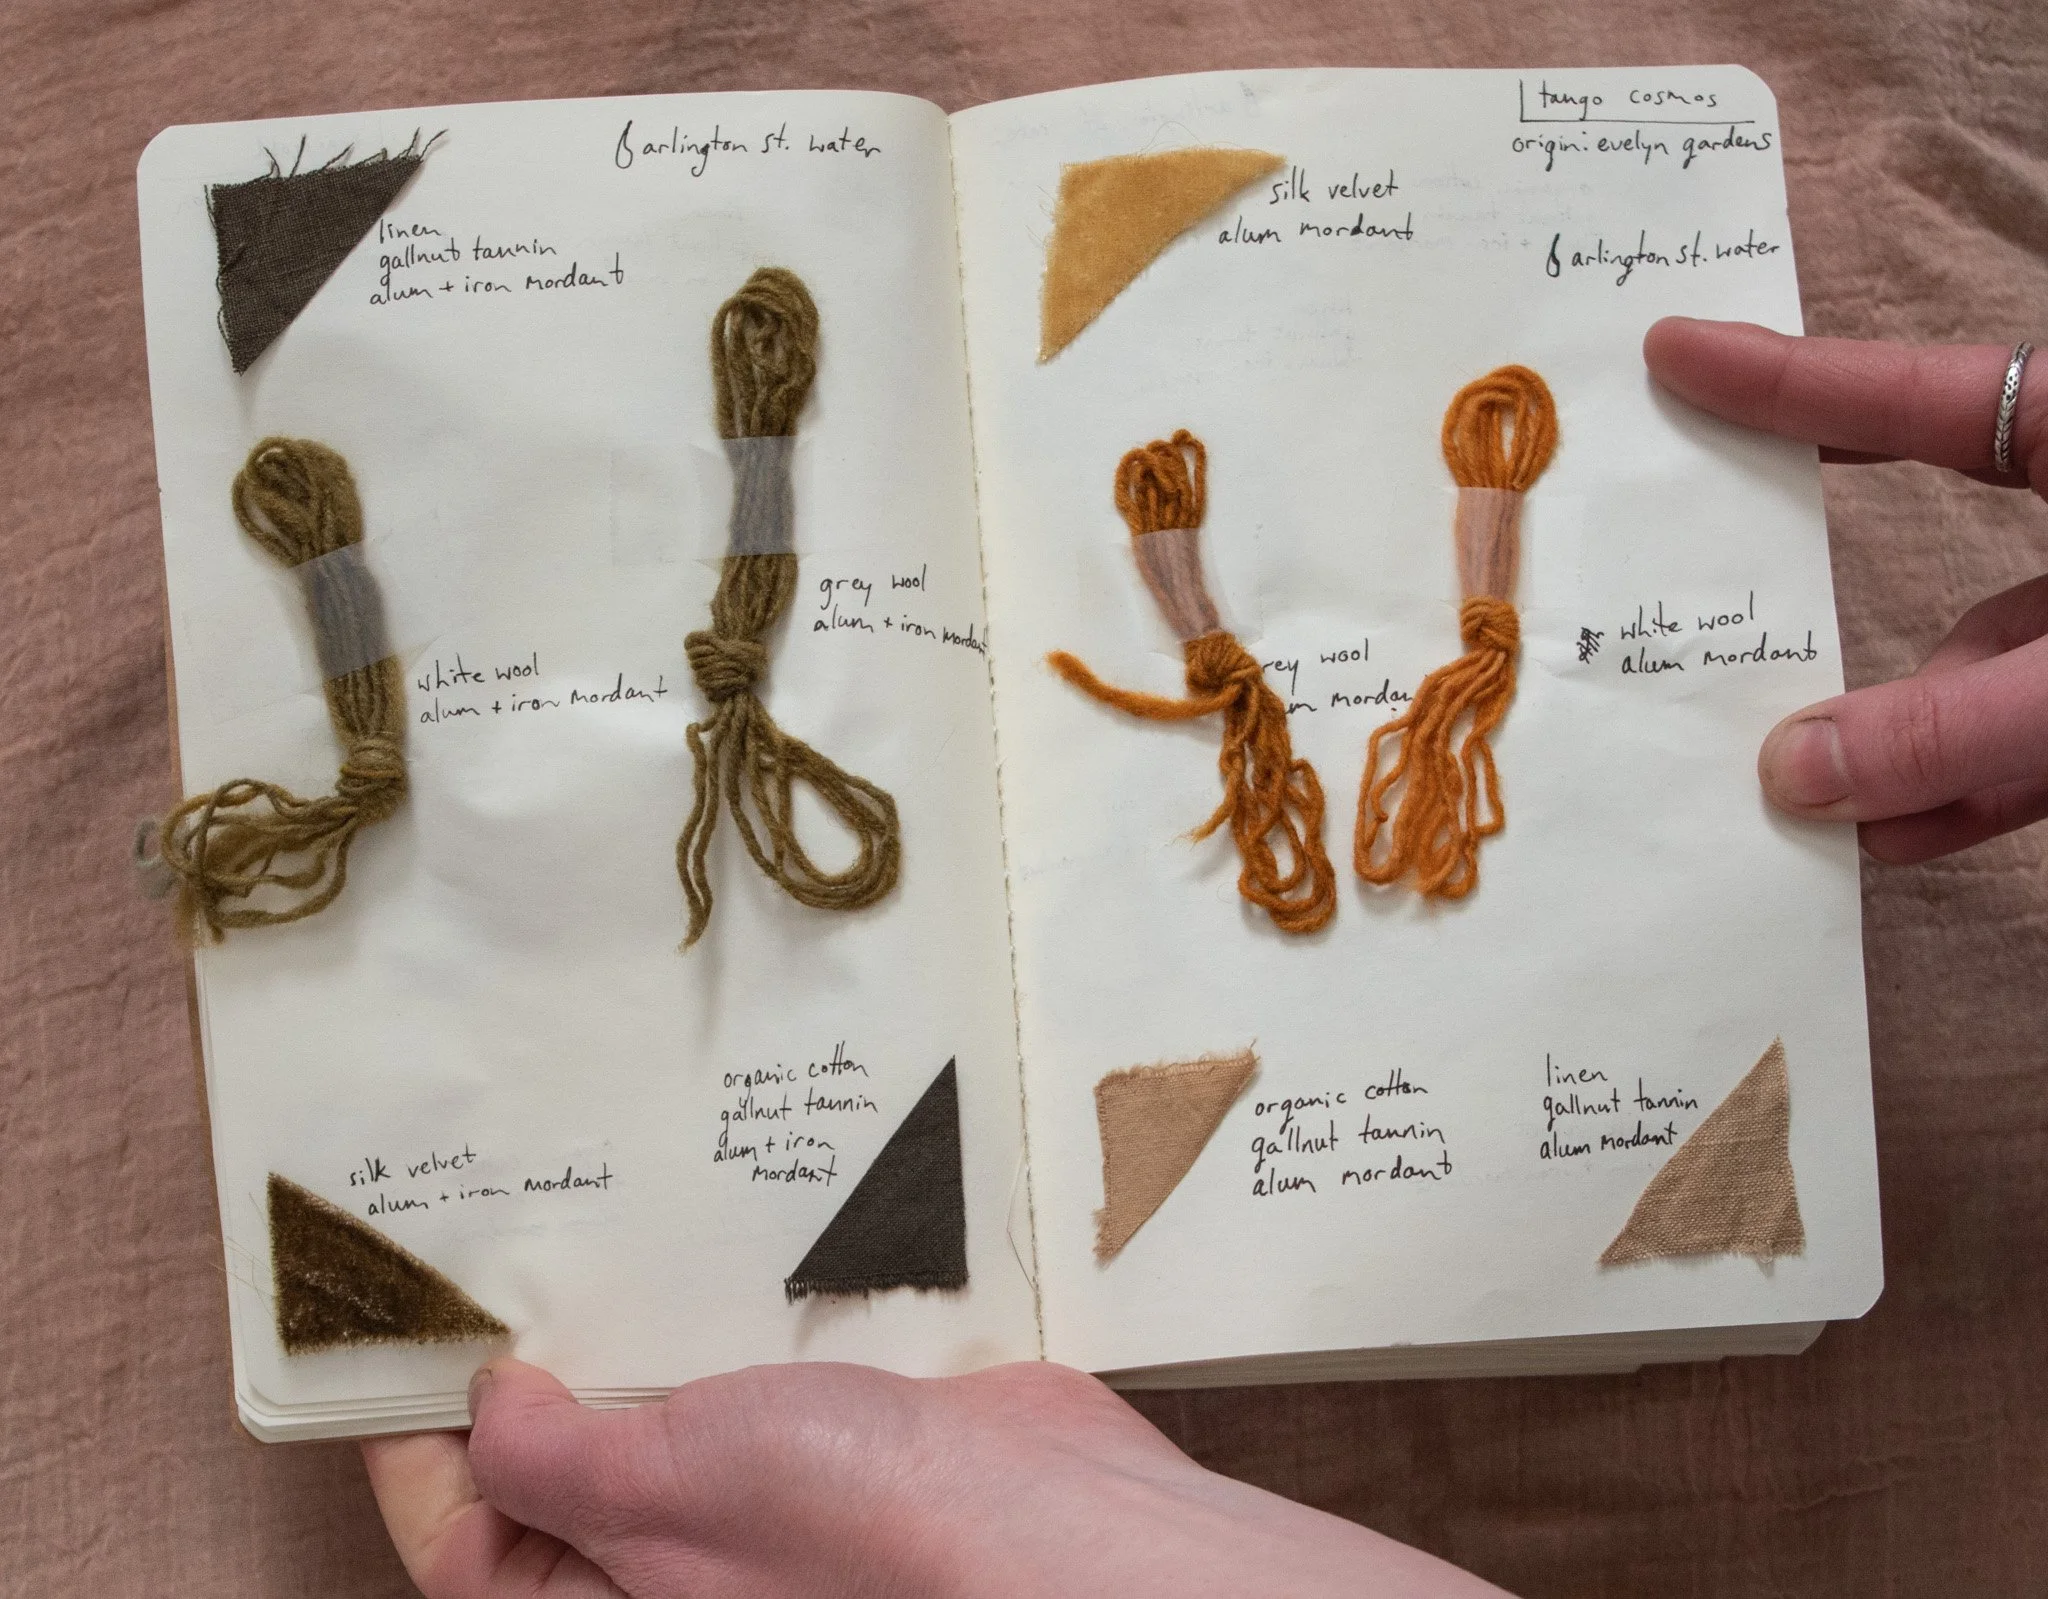 arlington st. water
linen
gallnut tannin
alum + iron mordant
grey wool
alum + iron mordant
white wool
alum + iron mordant
organic cotton
gallnut tannin
alum + iron
mordant
silk velvet
alum + iron mordant
tango cosmos
origin: evelyn gardens
silk velvet
alum mordant
arlington st. water
white wool
alum mordant
rey wool
m mordan
organic cotton
gallnut tannin
alum mordant
linen
gallnut tannin
alum mordant